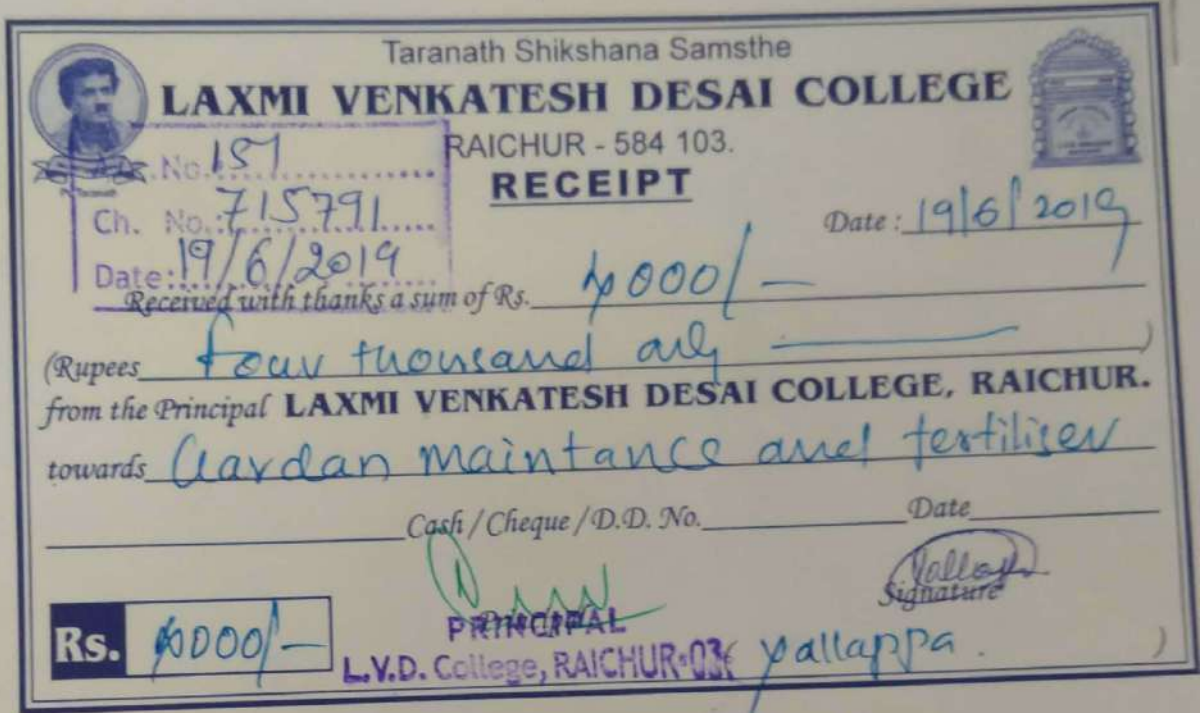 Taranath Shikshana Samsthe
LAXMI VENKATESH DESAI COLLEGE
RAICHUR - 584 103.
RECEIPT
No. 151
Ch. No.: 715791
Date: 19/6/2019
Date: 19/6/2019
Received with thanks a sum of Rs. 4000/-
(Rupees four thousand only )
from the Principal LAXMI VENKATESH DESAI COLLEGE, RAICHUR.
towards Gardan maintance and fertiliser
Cash / Cheque / D.D. No. Date
Signature
Rs. 4000/-
PRINCIPAL
L.V.D. College, RAICHUR-03 yallappa. )